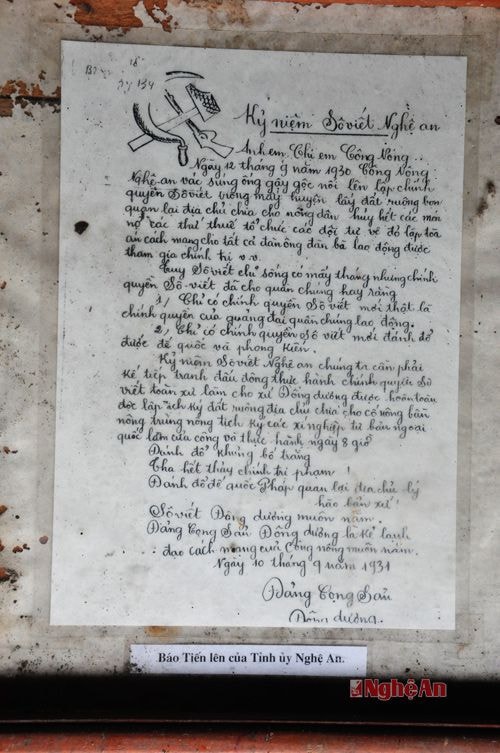 Kỷ niệm Sô viết Nghệ an
Anh em Chị em Công Nông..
Ngày 12 tháng 9 năm 1930 Công Nông
Nghệ-an vác súng ống gậy gộc nổi lên lập chính
quyền Sô viết trong mấy huyện lấy đất ruộng bọn
quan lại địa chủ chia cho nông dân hủy hết các món
nợ các thứ thuế tổ chức các đội tự vệ đỏ lập tòa
án cách mạng cho tất cả đàn ông đàn bà lao động được
tham gia chính trị v.v.
Tuy Sô viết chỉ sống có mấy tháng nhưng chính
quyền Sô-viết đã cho quần chúng hay rằng
1/ Chỉ có chính quyền Sô viết mới thật là
chính quyền của quảng đại quần chúng lao động.
2/ Chỉ có chính quyền Sô viết mới đánh đổ
được đế quốc và phong kiến.
Kỷ niệm Sô viết Nghệ an chúng ta cần phải
kế tiếp tranh đấu đặng thực hành chính quyền Sô
viết toàn xứ làm cho xứ Đông dương được hoàn toàn
độc lập tịch ký đất ruộng địa chủ chia cho cố nông bần
nông trung nông tịch ký các xí nghiệp tư bản ngoại
quốc làm của công và thực hành ngày 8 giờ
Đánh đổ khủng bố trắng
Tha hết thảy chính trị phạm !
Đánh đổ đế quốc Pháp quan lại địa chủ lý
hào bản xứ !
Sô viết Đông dương muôn năm.
Đảng Cộng Sản Đông dương là kẻ lãnh
đạo cách mạng của Công nông muôn năm.
Ngày 10 tháng 9 năm 1931
Đảng Cộng Sản
Đông dương.
Báo Tiến lên của Tỉnh ủy Nghệ An.
Nghệ An